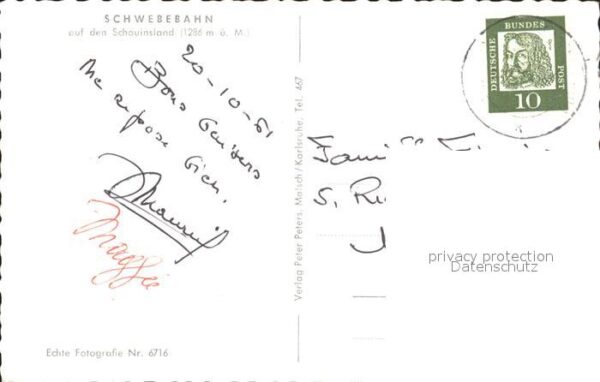 SCHWEBEBAHN
auf den Schauinsland (1286 m ü. M.)
20-10-61
Bons baisers
Me repose
bien.
Maurice
Maggie
Echte Fotografie Nr. 6716
Verlag Peter Peters, Malsch/Karlsruhe, Tel. 467
DEUTSCHE BUNDES POST
10
5
privacy protection
Datenschutz